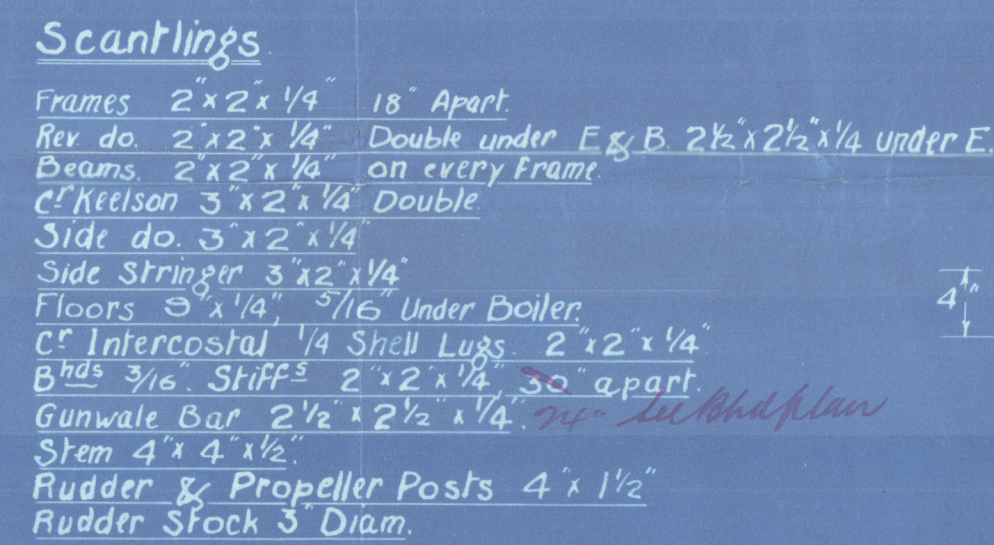 Scantlings.
Frames 2"x2"x1/4" 18" Apart.
Rev. do. 2"x2"x1/4" Double under E & B. 2½"x2½"x¼ under E.
Beams. 2"x2"x1/4" on every Frame.
Cr Keelson 3"x2"x1/4" Double.
Side do. 3"x2"x1/4"
Side Stringer 3"x2"x1/4"
4"
Floors 9"x1/4", 5/16" Under Boiler.
Cr Intercostal 1/4 Shell Lugs. 2"x2"x1/4"
Bhds 3/16". Stiffs 2"x2"x1/4", 30" apart.
24" See Bhd plan
Gunwale Bar 2½"x2½"x1/4".
Stem 4"x4"x½".
Rudder & Propeller Posts 4"x1½"
Rudder Stock 3" Diam.